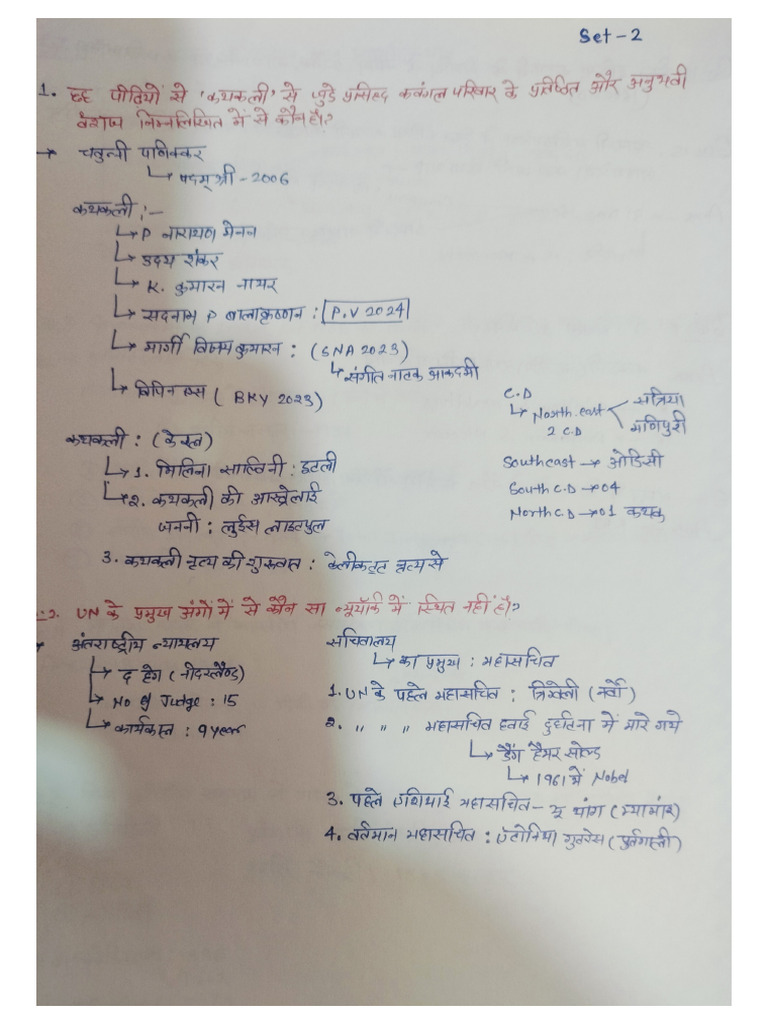 Set-2
1. छह पीढियों से 'कथकली' से जुड़े प्रसिध्द कवंगल परिवार के प्रतिष्ठित और अनुभवी
वंशज निम्नलिखित में से कौन है?
→ चथुन्नी पणिक्कर
↳ पदम् श्री - 2006
कथकली :-
↳ P नारायण मेनन
↳ उदय शंकर
↳ K. कुमारन नायर
↳ सदनाम P बालाकृष्णन : P.V 2024
↳ मार्गी विजय कुमारन : (SNA 2023)
↳ संगीत नाटक अकादमी
↳ विपिन दास ( BKY 2023)
C.D
↳ North. east सत्रिया
2 C.D मणिपुरी
South east → ओडिसी
South C.D → 04
North C.D → 01 कथक
कथकली : (केरल)
↳ 1. मिलिना साल्विनी : इटली
↳ 2. कथकली की आस्ट्रेलाई
जननी : लुईस लाइटफुल
3. कथकली नृत्य की शुरुवात : केलीकट्ट नृत्य से
2. UN के प्रमुख अंगों में से कौन सा न्यूयॉर्क में स्थित नहीं है?
→ अंतराष्ट्रीय न्यायलय
↳ द हेग (नीदरलैण्ड)
↳ No of Judge : 15
↳ कार्यकाल : 9 year
सचिवालय
↳ का प्रमुख : महासचित
1. UN के पहले महासचित : त्रिग्वेली (नर्वो)
2. " " " महासचित हवाई दुर्घटिना में मारे गये
↳ डैग हैमर सोल्ड
↳ 1961 में Nobel
3. पहले एशियाई महासचित - यू थांग (म्यामांर)
4. वर्तमान महासचित : एंटोनिया गुतरेस (पुर्तगाली)